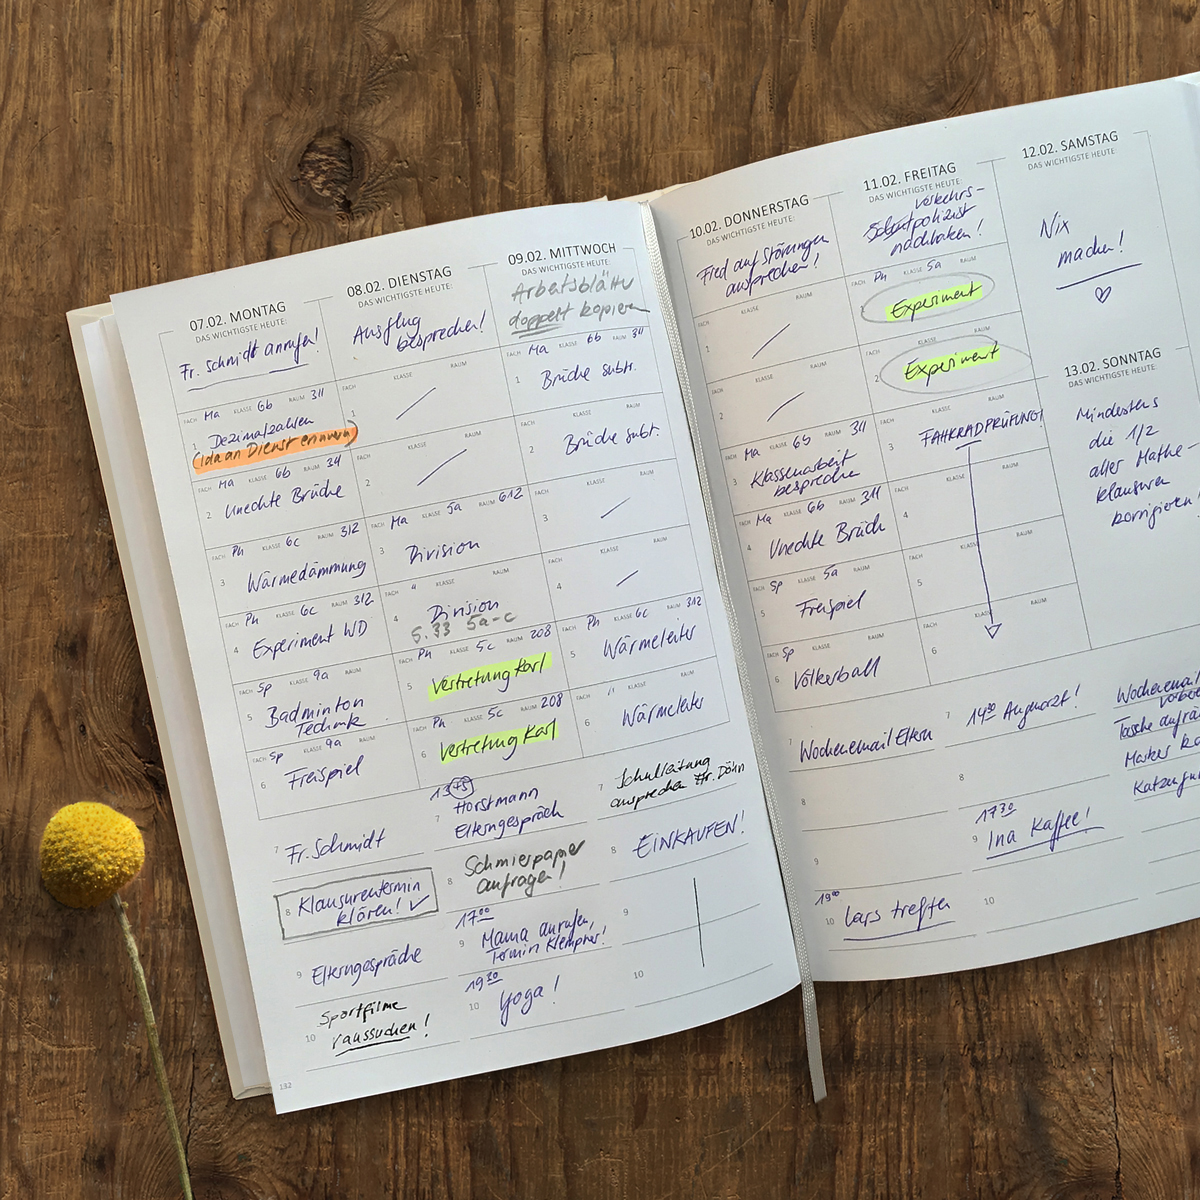 07.02. MONTAG
DAS WICHTIGSTE HEUTE:
Fr. Schmidt anrufen!
FACH Ma KLASSE 6b RAUM 311
1 Dezimalzahlen
(Ida an Dienst erinnern)
FACH Ma KLASSE 6b RAUM 311
2 Unechte Brüche
FACH Ph KLASSE 6c RAUM 312
3 Wärmedämmung
FACH Ph KLASSE 6c RAUM 312
4 Experiment WD
FACH Sp KLASSE 9a RAUM
5 Badminton
Technik
FACH Sp KLASSE 9a RAUM
6 Freispiel
7 Fr. Schmidt
8 Klausurentermin
klären! ✓
9 Elterngespräche
10 Sportfilme
raussuchen!
132
08.02. DIENSTAG
DAS WICHTIGSTE HEUTE:
Ausflug
besprechen!
FACH KLASSE RAUM
1
FACH KLASSE RAUM
2
FACH Ma KLASSE 5a RAUM 612
3 Division
FACH " KLASSE RAUM
4 Division
S. 33 5a-c
FACH Ph KLASSE 5c RAUM 208
5 Vertretung Karl
FACH Ph KLASSE 5c RAUM 208
6 Vertretung Karl
13 45
7 Horstmann
Elterngespräch
8 Schmierpapier
anfragen!
17 00
9 Mama anrufen,
Termin Klempner!
19 30
10 Yoga!
09.02. MITTWOCH
DAS WICHTIGSTE HEUTE:
Arbeitsblätter
doppelt kopieren
FACH Ma KLASSE 6b RAUM 311
1 Brüche subtr.
FACH KLASSE RAUM
2 Brüche subt.
FACH KLASSE RAUM
3
FACH KLASSE RAUM
4
FACH Ph KLASSE 6c RAUM 312
5 Wärmeleiter
FACH " KLASSE RAUM
6 Wärmeleiter
7 Schulleitung
ansprechen Fr. Döhn
8 EINKAUFEN!
9
10
10.02. DONNERSTAG
DAS WICHTIGSTE HEUTE:
Fred auf Störungen
ansprechen!
FACH KLASSE RAUM
1
FACH KLASSE RAUM
2
FACH Ma KLASSE 6b RAUM 311
3 Klassenarbeit
besprechen
FACH Ma KLASSE 6b RAUM 311
4 Unechte Brüch
FACH Sp KLASSE 5a RAUM
5 Freispiel
FACH Sp KLASSE RAUM
6 Völkerball
7 Wochenemail Eltern
8
9
19 00
10 Lars treffen
11.02. FREITAG
DAS WICHTIGSTE HEUTE:
Verkehrs-
polizist
nachhaken!
FACH Ph KLASSE 5a RAUM
Experiment
FACH KLASSE RAUM
2 Experiment
FACH KLASSE RAUM
3 FAHRRADPRÜFUNG!
FACH KLASSE RAUM
4
FACH KLASSE RAUM
5
FACH KLASSE RAUM
6
7 14 30 Augenarzt!
8
17 30
9 Ina Kaffee!
10
12.02. SAMSTAG
DAS WICHTIGSTE HEUTE:
Nix
machen!
♡
13.02. SONNTAG
DAS WICHTIGSTE HEUTE:
Mindestens
die 1/2
aller Mathe-
klausuren
korrigieren!
Wochenemail
Tasche
Master